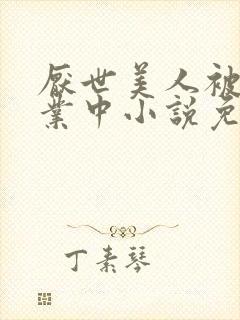 厭世美人被
業中小說免
丁素琴